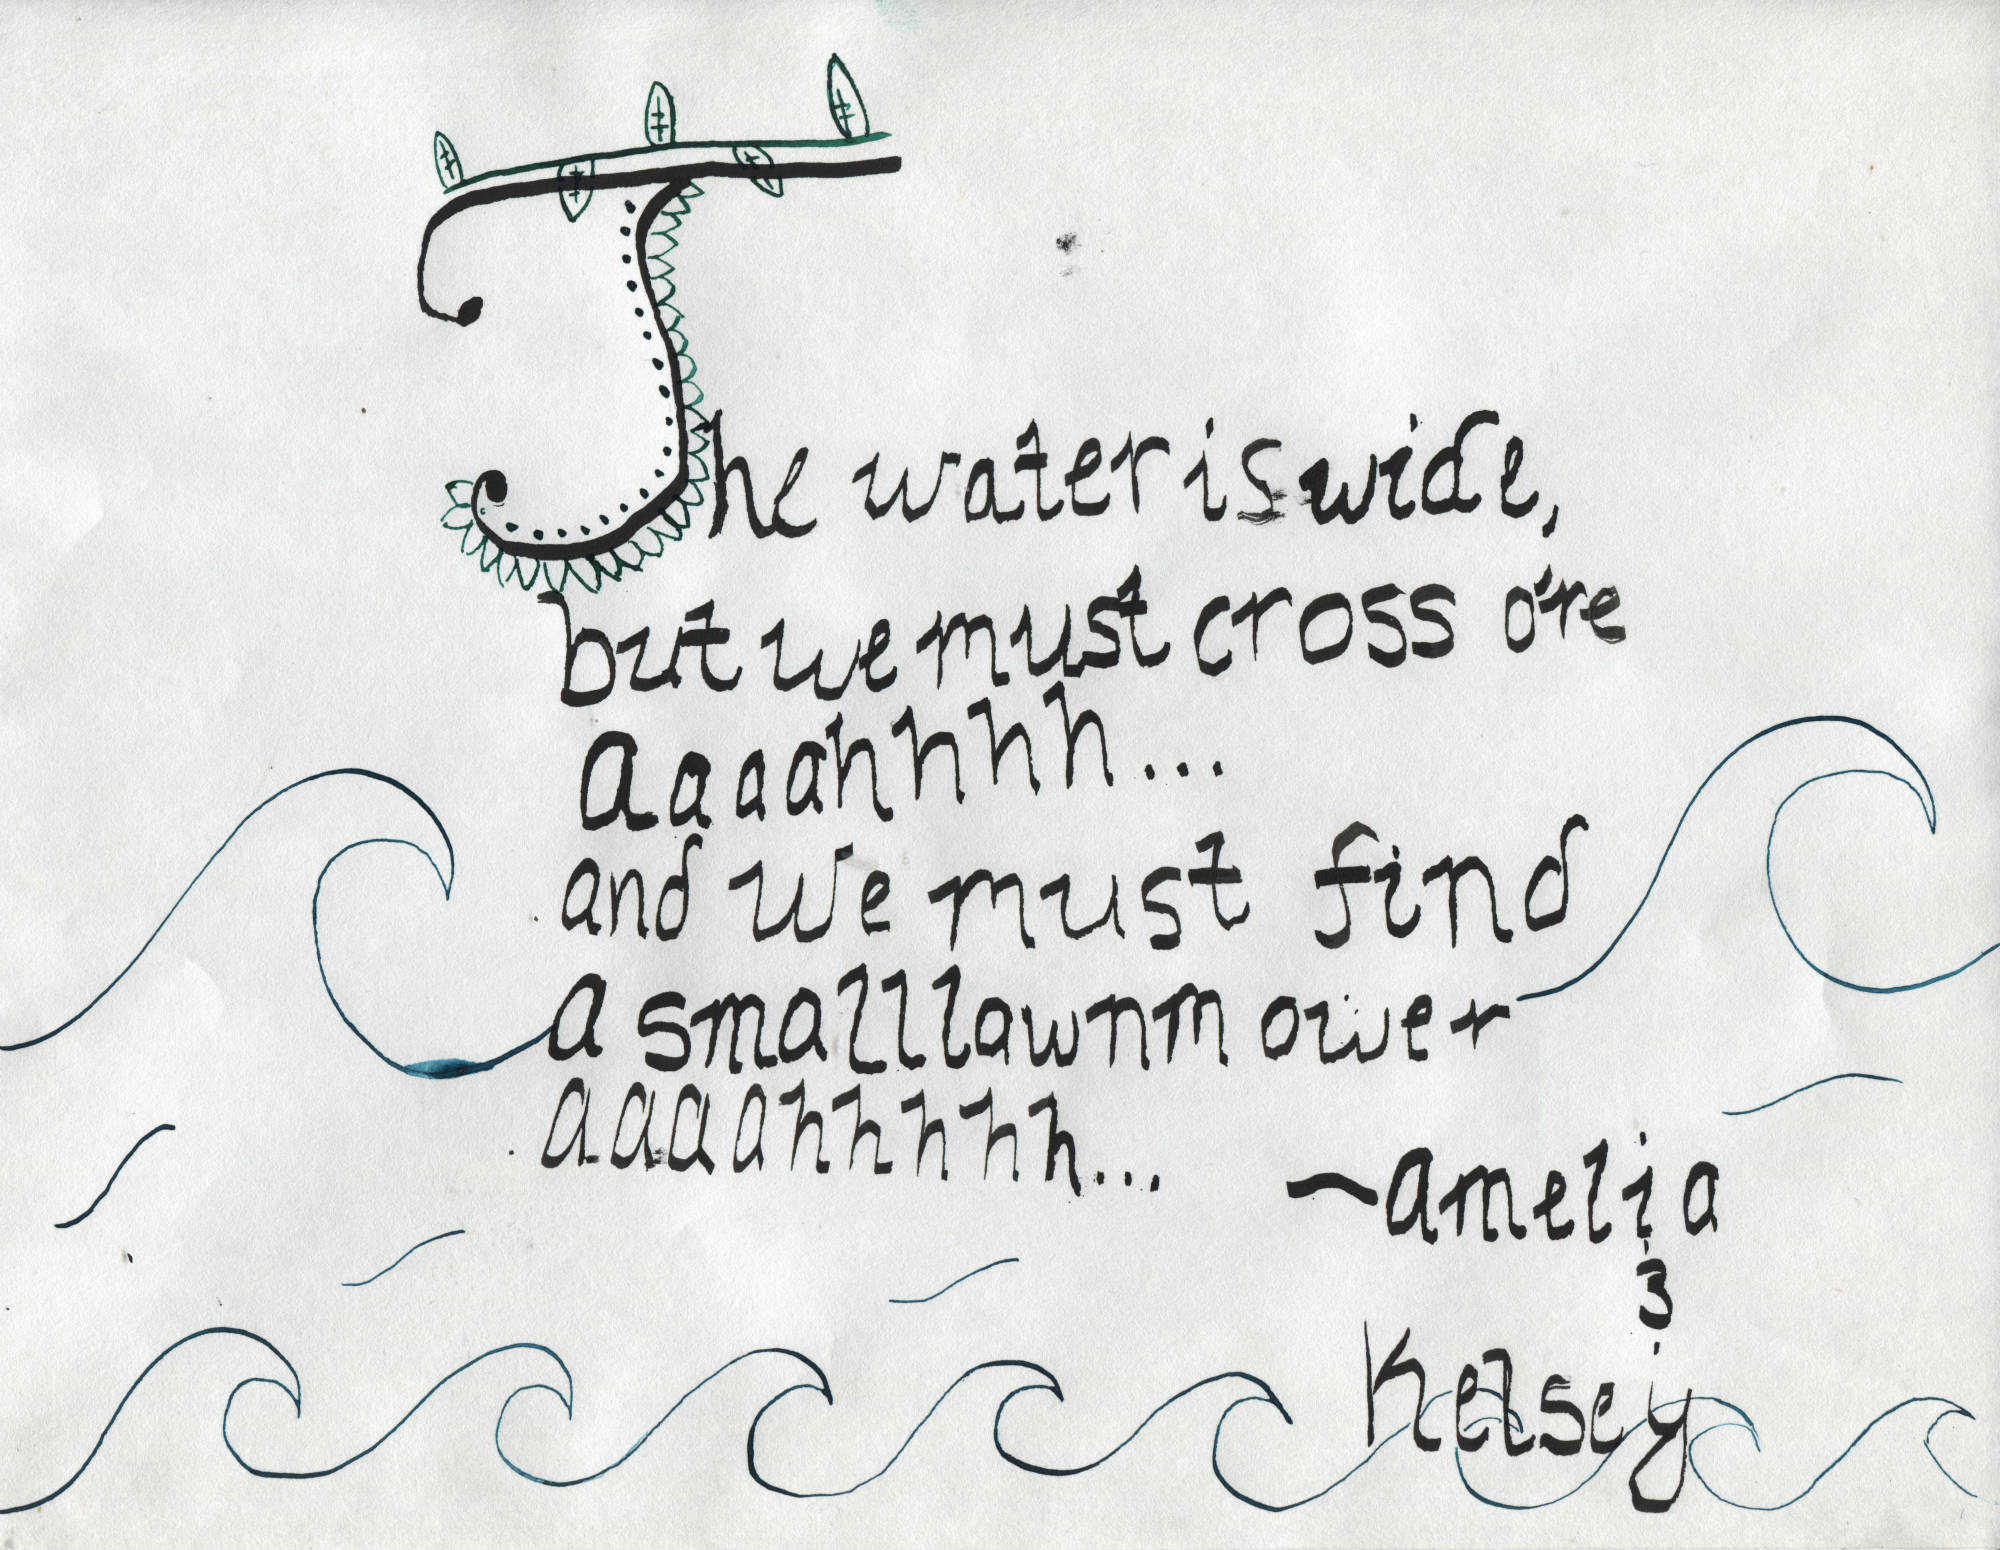 The water is wide,
but we must cross o're
Aaaahhhh...
and we must find
a small lawnmower
aaaahhhhh...
~Amelia
&
Kelsey